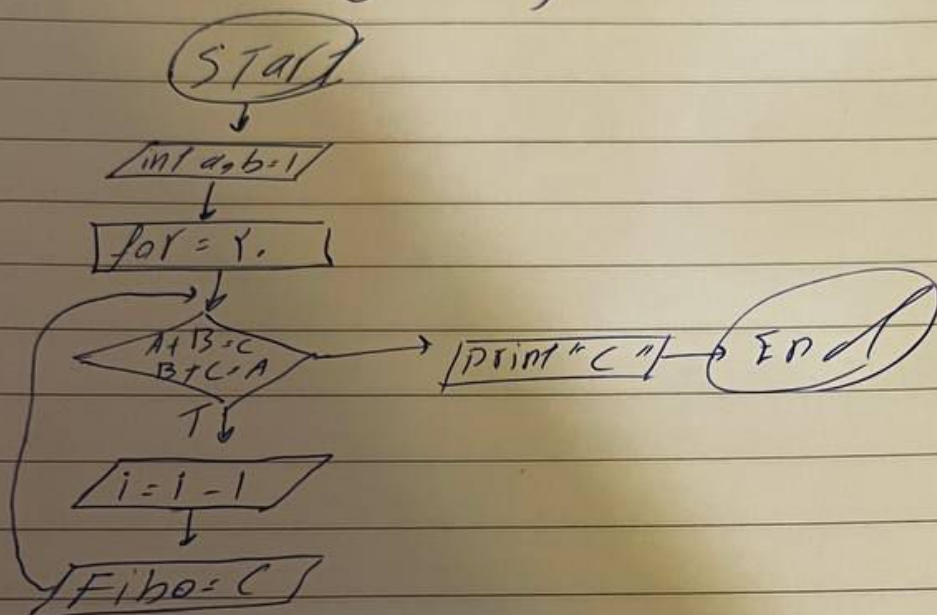 START
int a, b = 1
for = ۲.
A + B = C
B + C = A
print "C"
End
T
i = i - 1
Fibo = C